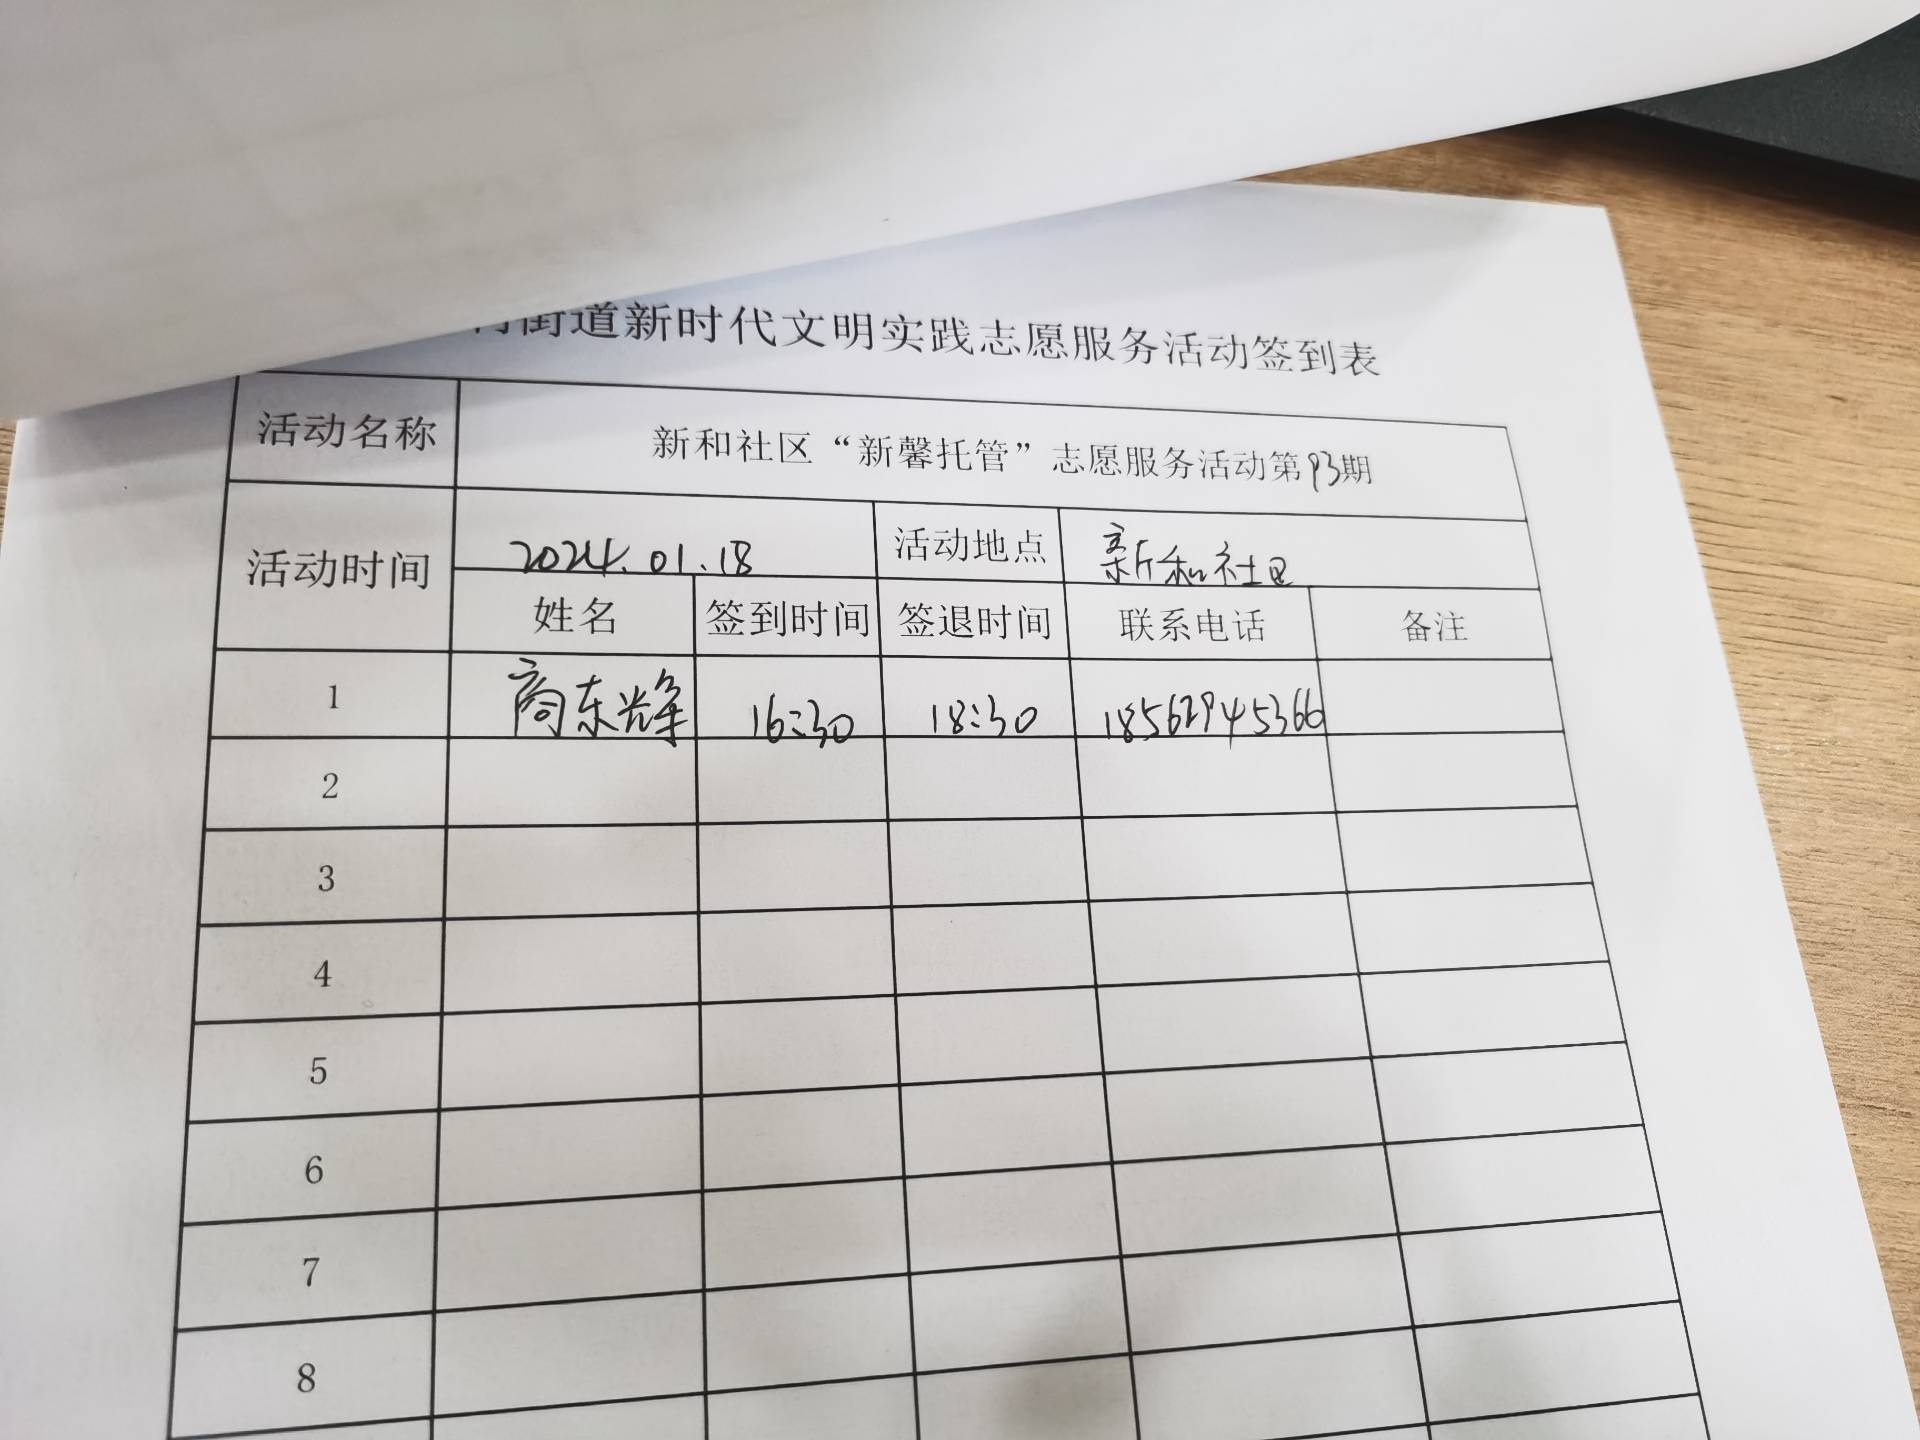 街道新时代文明实践志愿服务活动签到表
活动名称 新和社区“新馨托管”志愿服务活动第93期
活动时间 2024.01.18 活动地点 新和社区
姓名 签到时间 签退时间 联系电话 备注
1 商东烽 16:30 18:30 18562945366
2
3
4
5
6
7
8